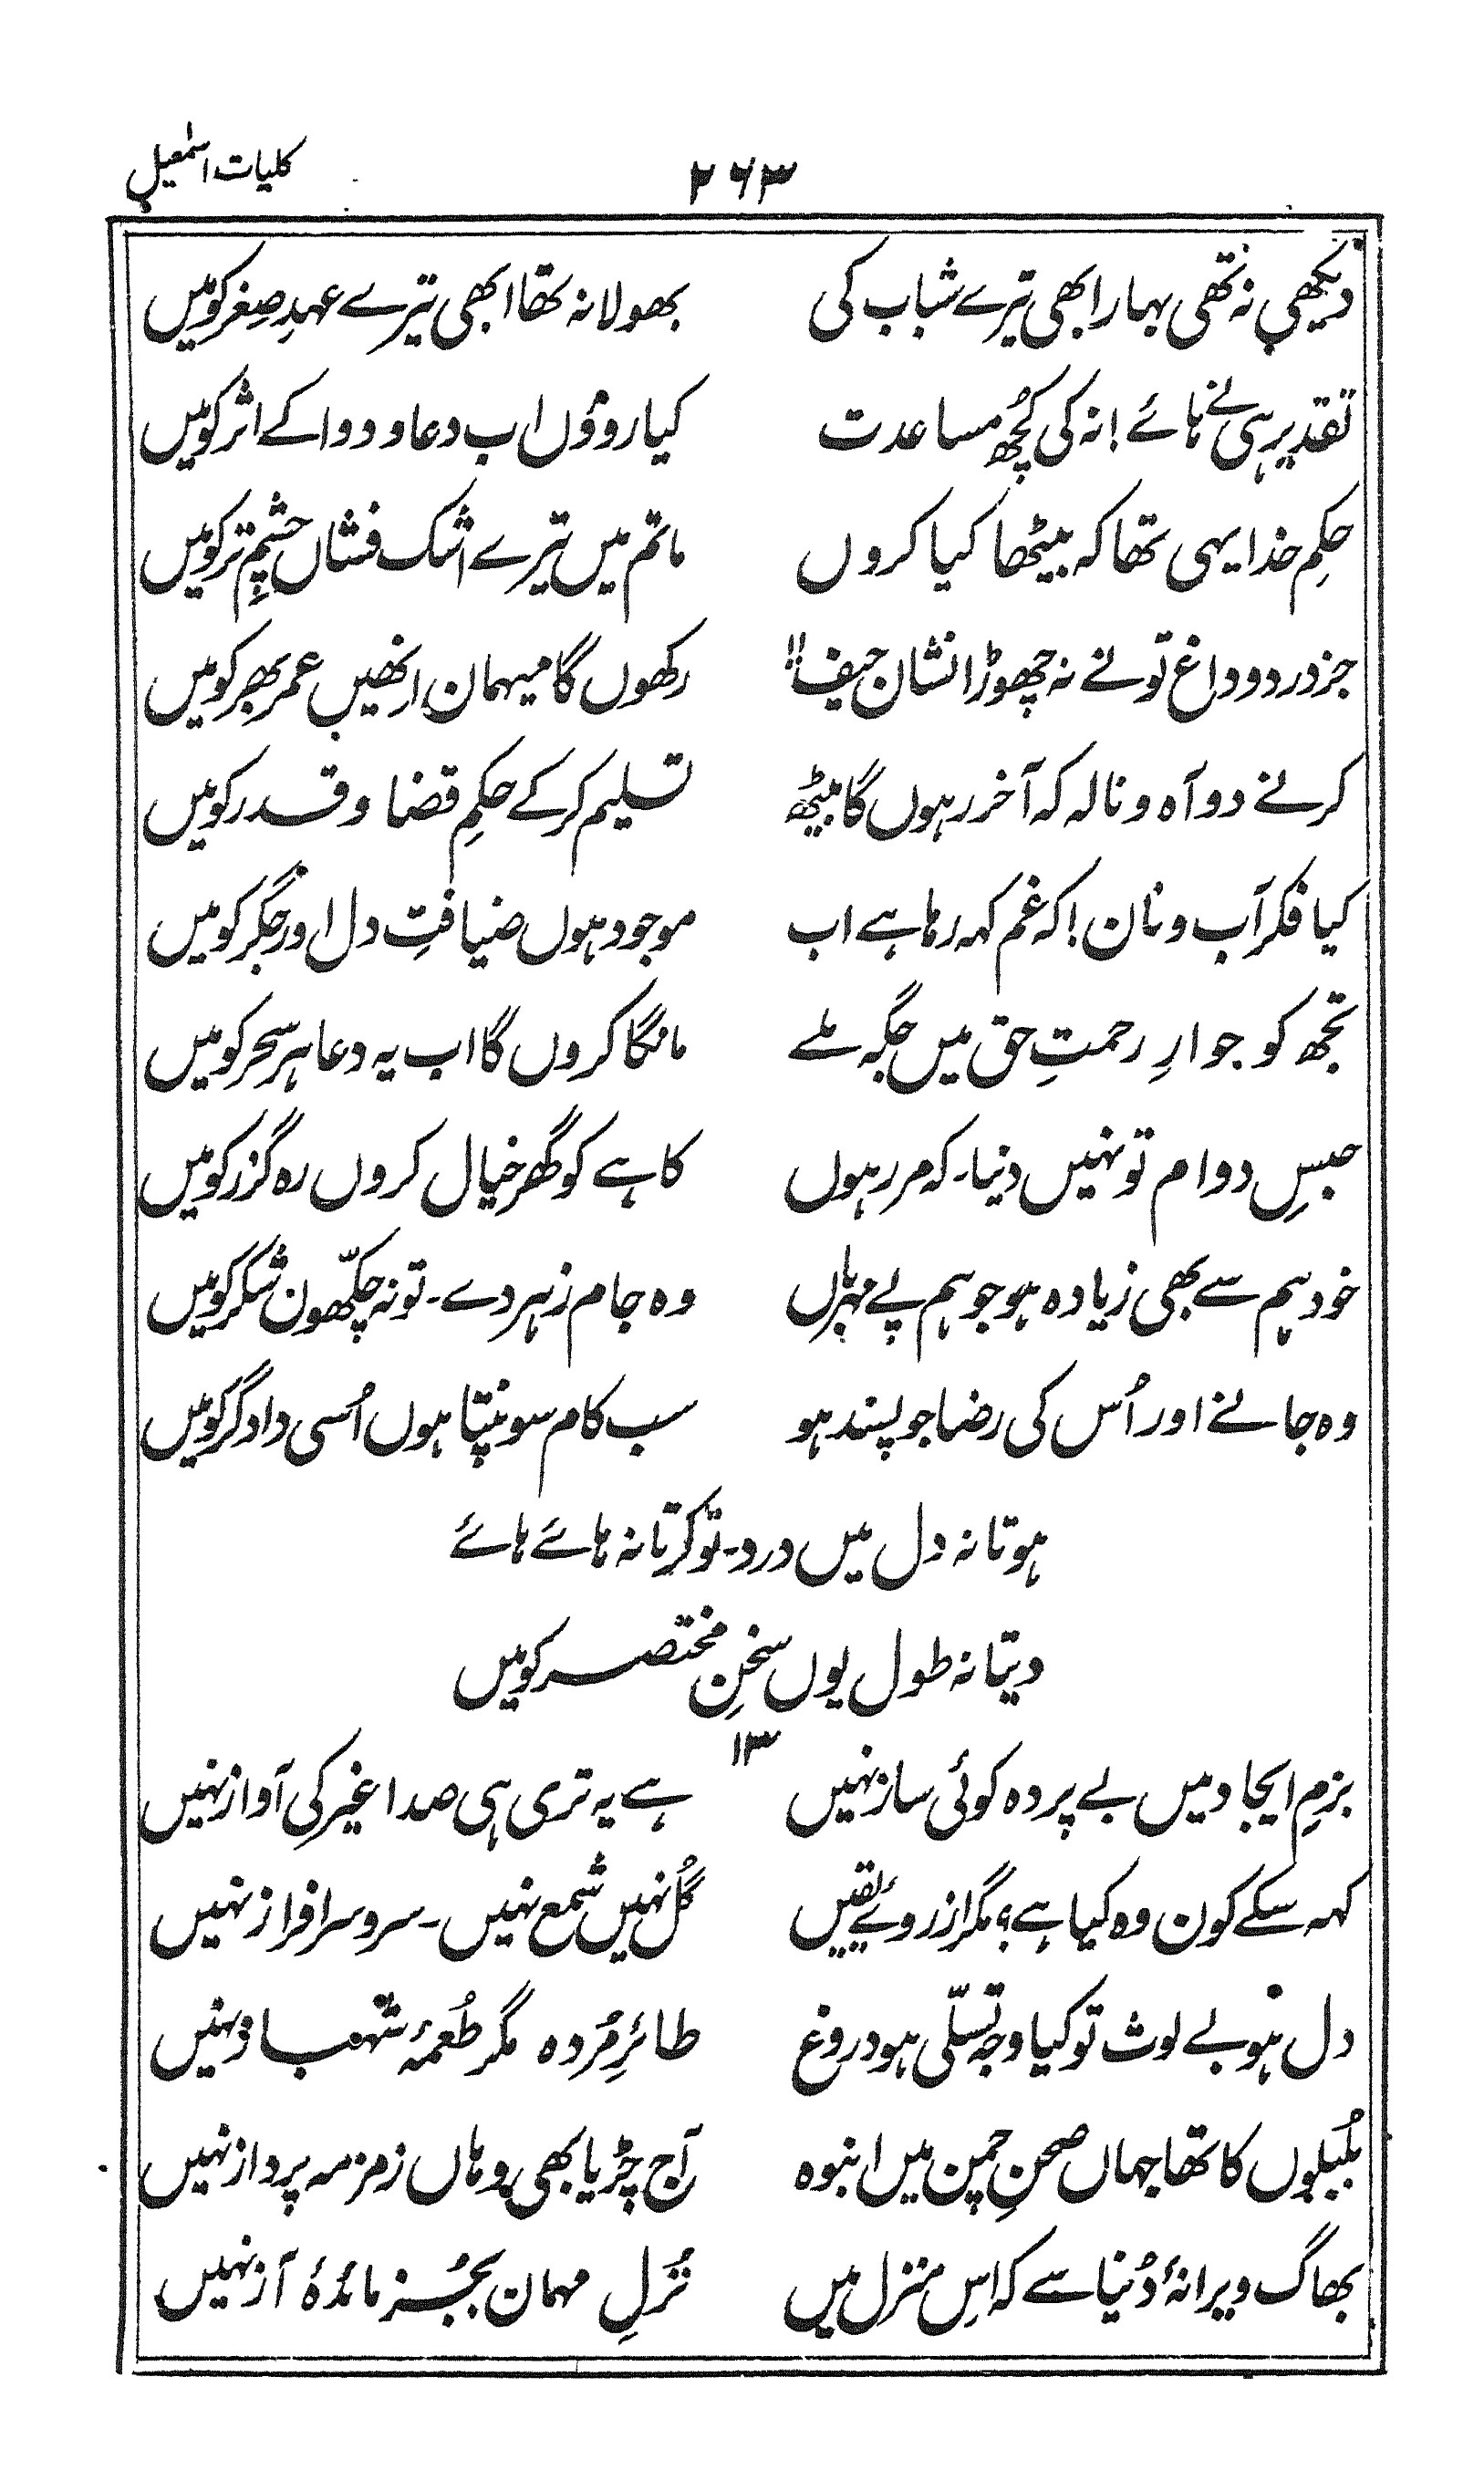 ۲۶۳ کلیات اسمٰعیل
دیکھی نہ تھی بہار ابھی تیرے شباب کی بھولا نہ تھا ابھی تیرے عہدِ صِغر کو میں
تقدیر ہی نے ہائے! نہ کی کُچھ مساعدت کیا روؤں اب دعا و دوا کے اثر کو میں
حکمِ خدا یہی تھا کہ بیٹھا کیا کروں ماتم میں تیرے اشک فشاں چشمِ تر کو میں
جز درد و داغ تو نے نہ چھوڑا نشان حیف!! رکھوں گا میہمان اِنھیں عمر بھر کو میں
کرنے دو آہ و نالہ کہ آخر رہوں گا بیٹھ تسلیم کر کے حکمِ قضا و قدر کو میں
کیا فکر آب و نان! کہ غم کہہ رہا ہے اب موجود ہوں ضیافتِ دل اور جگر کو میں
تجھ کو جوارِ رحمتِ حق میں جگہ ملے مانگا کروں گا اب یہ دعا ہر سحر کو میں
حبسِ دوام تو نہیں دنیا۔ کہ مر رہوں کاہے کو گھر خیال کروں رہ گزر کو میں
خود ہم سے بھی زیادہ ہو جو ہم پے مہرباں وہ جام زہر دے۔ تو نہ چکّھوں شکر کو میں
وہ جانے اور اُس کی رضا جو پسند ہو سب کام سونپتا ہوں اُسی دادگر کو میں
ہوتا نہ دل میں درد۔ تو کرتا نہ ہائے ہائے
دیتا نہ طول یوں سخنِ مختصر کو میں
۱۳
بزمِ ایجاد میں بے پردہ کوئی ساز نہیں ہے یہ تری ہی صدا غیر کی آواز نہیں
کہہ سکے کون وہ کیا ہے؟ مگر از روئے یقیں گُل نہیں شمع نہیں۔ سرو سرافراز نہیں
دل ہو بے لوث تو کیا وجہ تسلّی ہو دروغ طائرِ مُردہ مگر طُعمۂ شہباز نہیں
بلبُلوں کا تھا جہاں صحنِ چمن میں انبوہ آج چڑیا بھی وہاں زمزمہ پرداز نہیں
بھاگ ویرانۂ دُنیا سے کہ اِس منزل میں نُزلِ مہمان بجُز مائدۂ آز نہیں